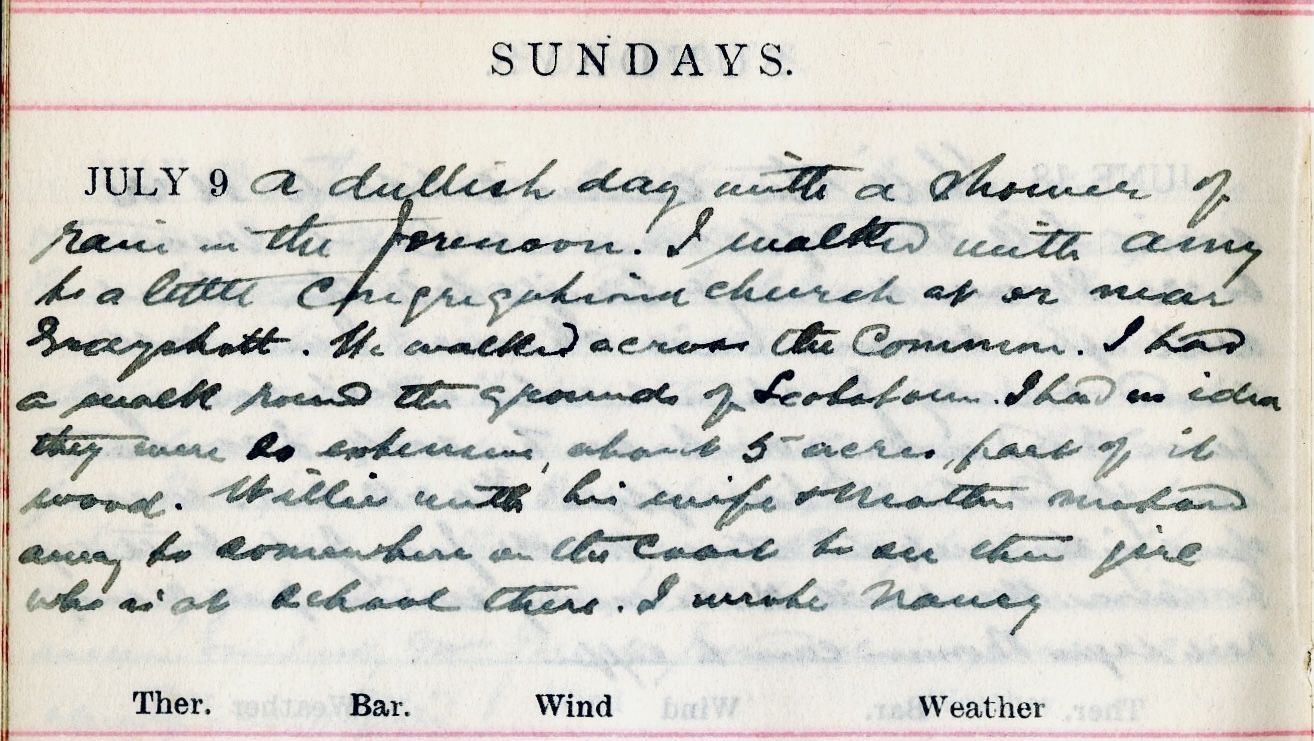 SUNDAYS.
JULY 9 A dullish day with a shower of
rain in the forenoon. I walked with Amy
to a little Congregational church at or near
Grayshott. We walked across the Common. I had
a walk round the grounds of I had no idea
they were so extensive, about 5 acres, part of it
wood. Willie with his wife & Mother motored
away to somewhere on the Coast to see their girl
who is at school there. I wrote Nancy
Ther. Bar. Wind Weather